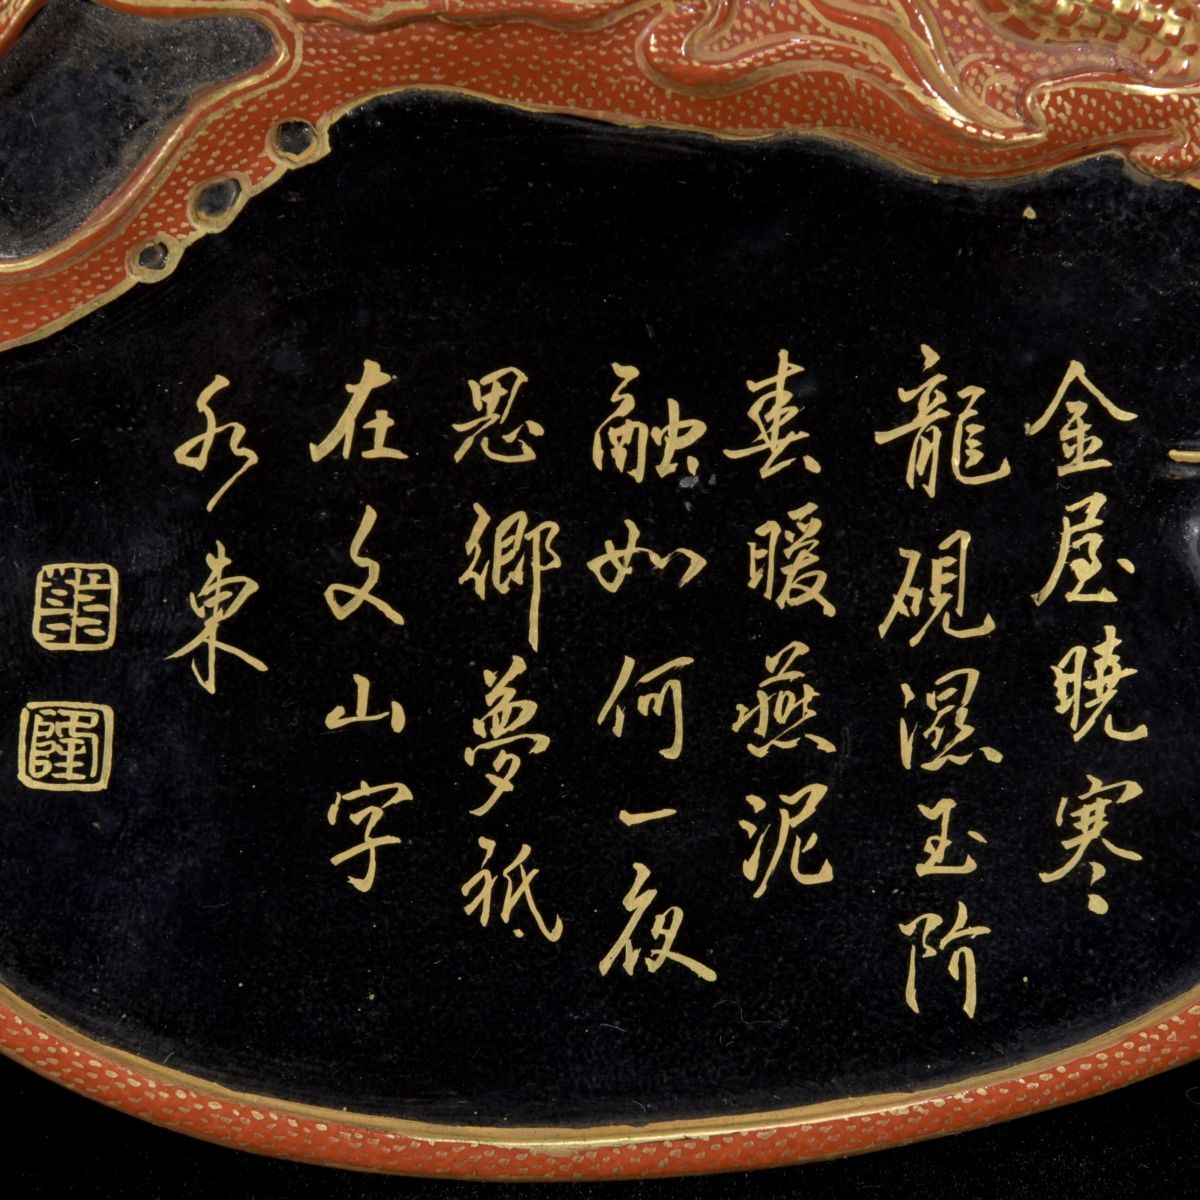 金屋曉寒
龍硯濕玉階
春暖燕泥
融如何一夜
思鄉夢祇
在文山字
水東
隆